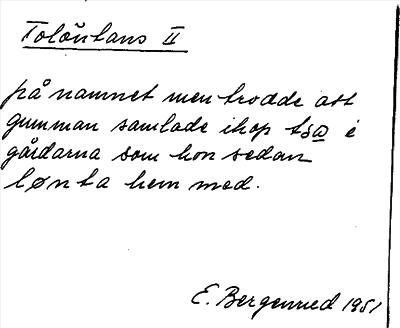 Tolõnlans II
på namnet men trodde att
gumman samlade ihop tsa i
gårdarna som hon sedan
lønta hem med.
E. Bergenved 1951